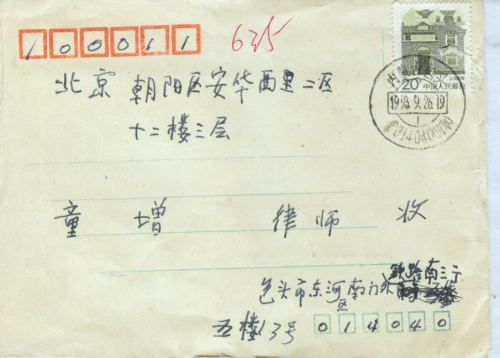 100011
635
北京 朝阳区安华西里二区
十二楼三层
20
中国人民邮政
内蒙
1993.9.26.19
童 增 律师 收
包头市东河区南门外铁路南三厅
五楼13号
014040